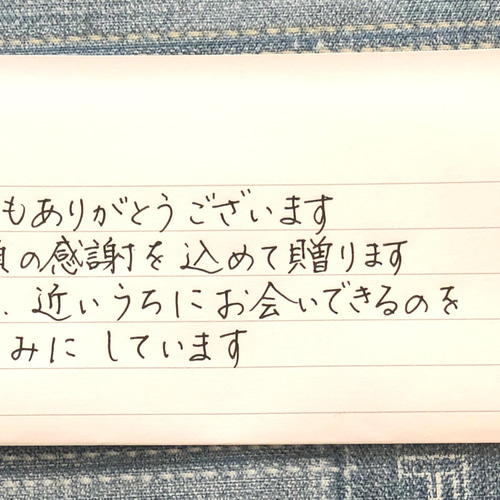 もありがとうございます
の感謝を込めて贈ります
、近いうちにお会いできるのを
みにしています